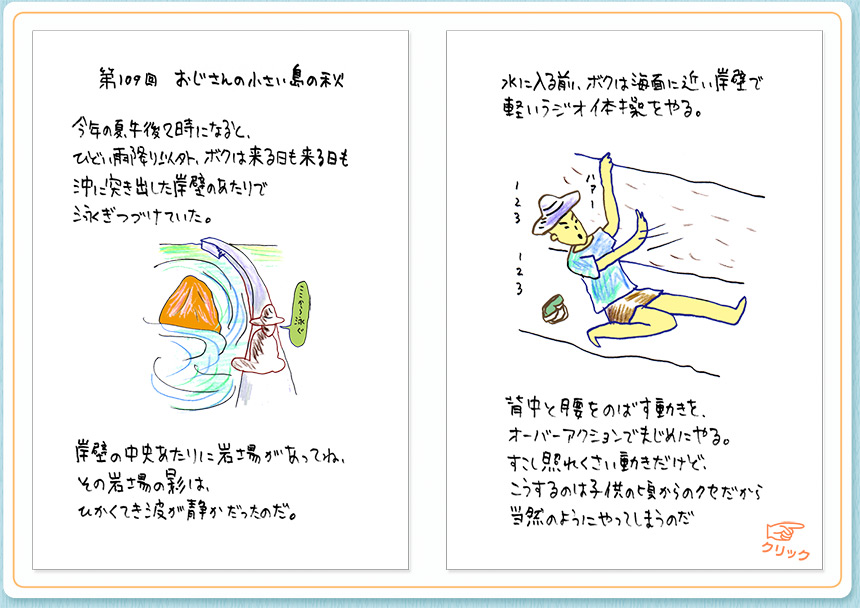 第109回 おじさんの小さい島の秋
今年の夏、午後2時になると、
ひどい雨降り以外、ボクは来る日も来る日も
沖に突き出した岸壁のあたりで
泳ぎつづけていた。
ここから泳ぐ
岸壁の中央あたりに岩場があってね、
その岩場の影は、
ひかくてき波が静かだったのだ。
水に入る前、ボクは海面に近い岸壁で
軽いラジオ体操をやる。
ハァー
1
2
3
1
2
3
背中と腰をのばす動きを、
オーバーアクションでまじめにやる。
すこし照れくさい動きだけど、
こうするのは子供の頃からのクセだから
当然のようにやってしまうのだ
クリック